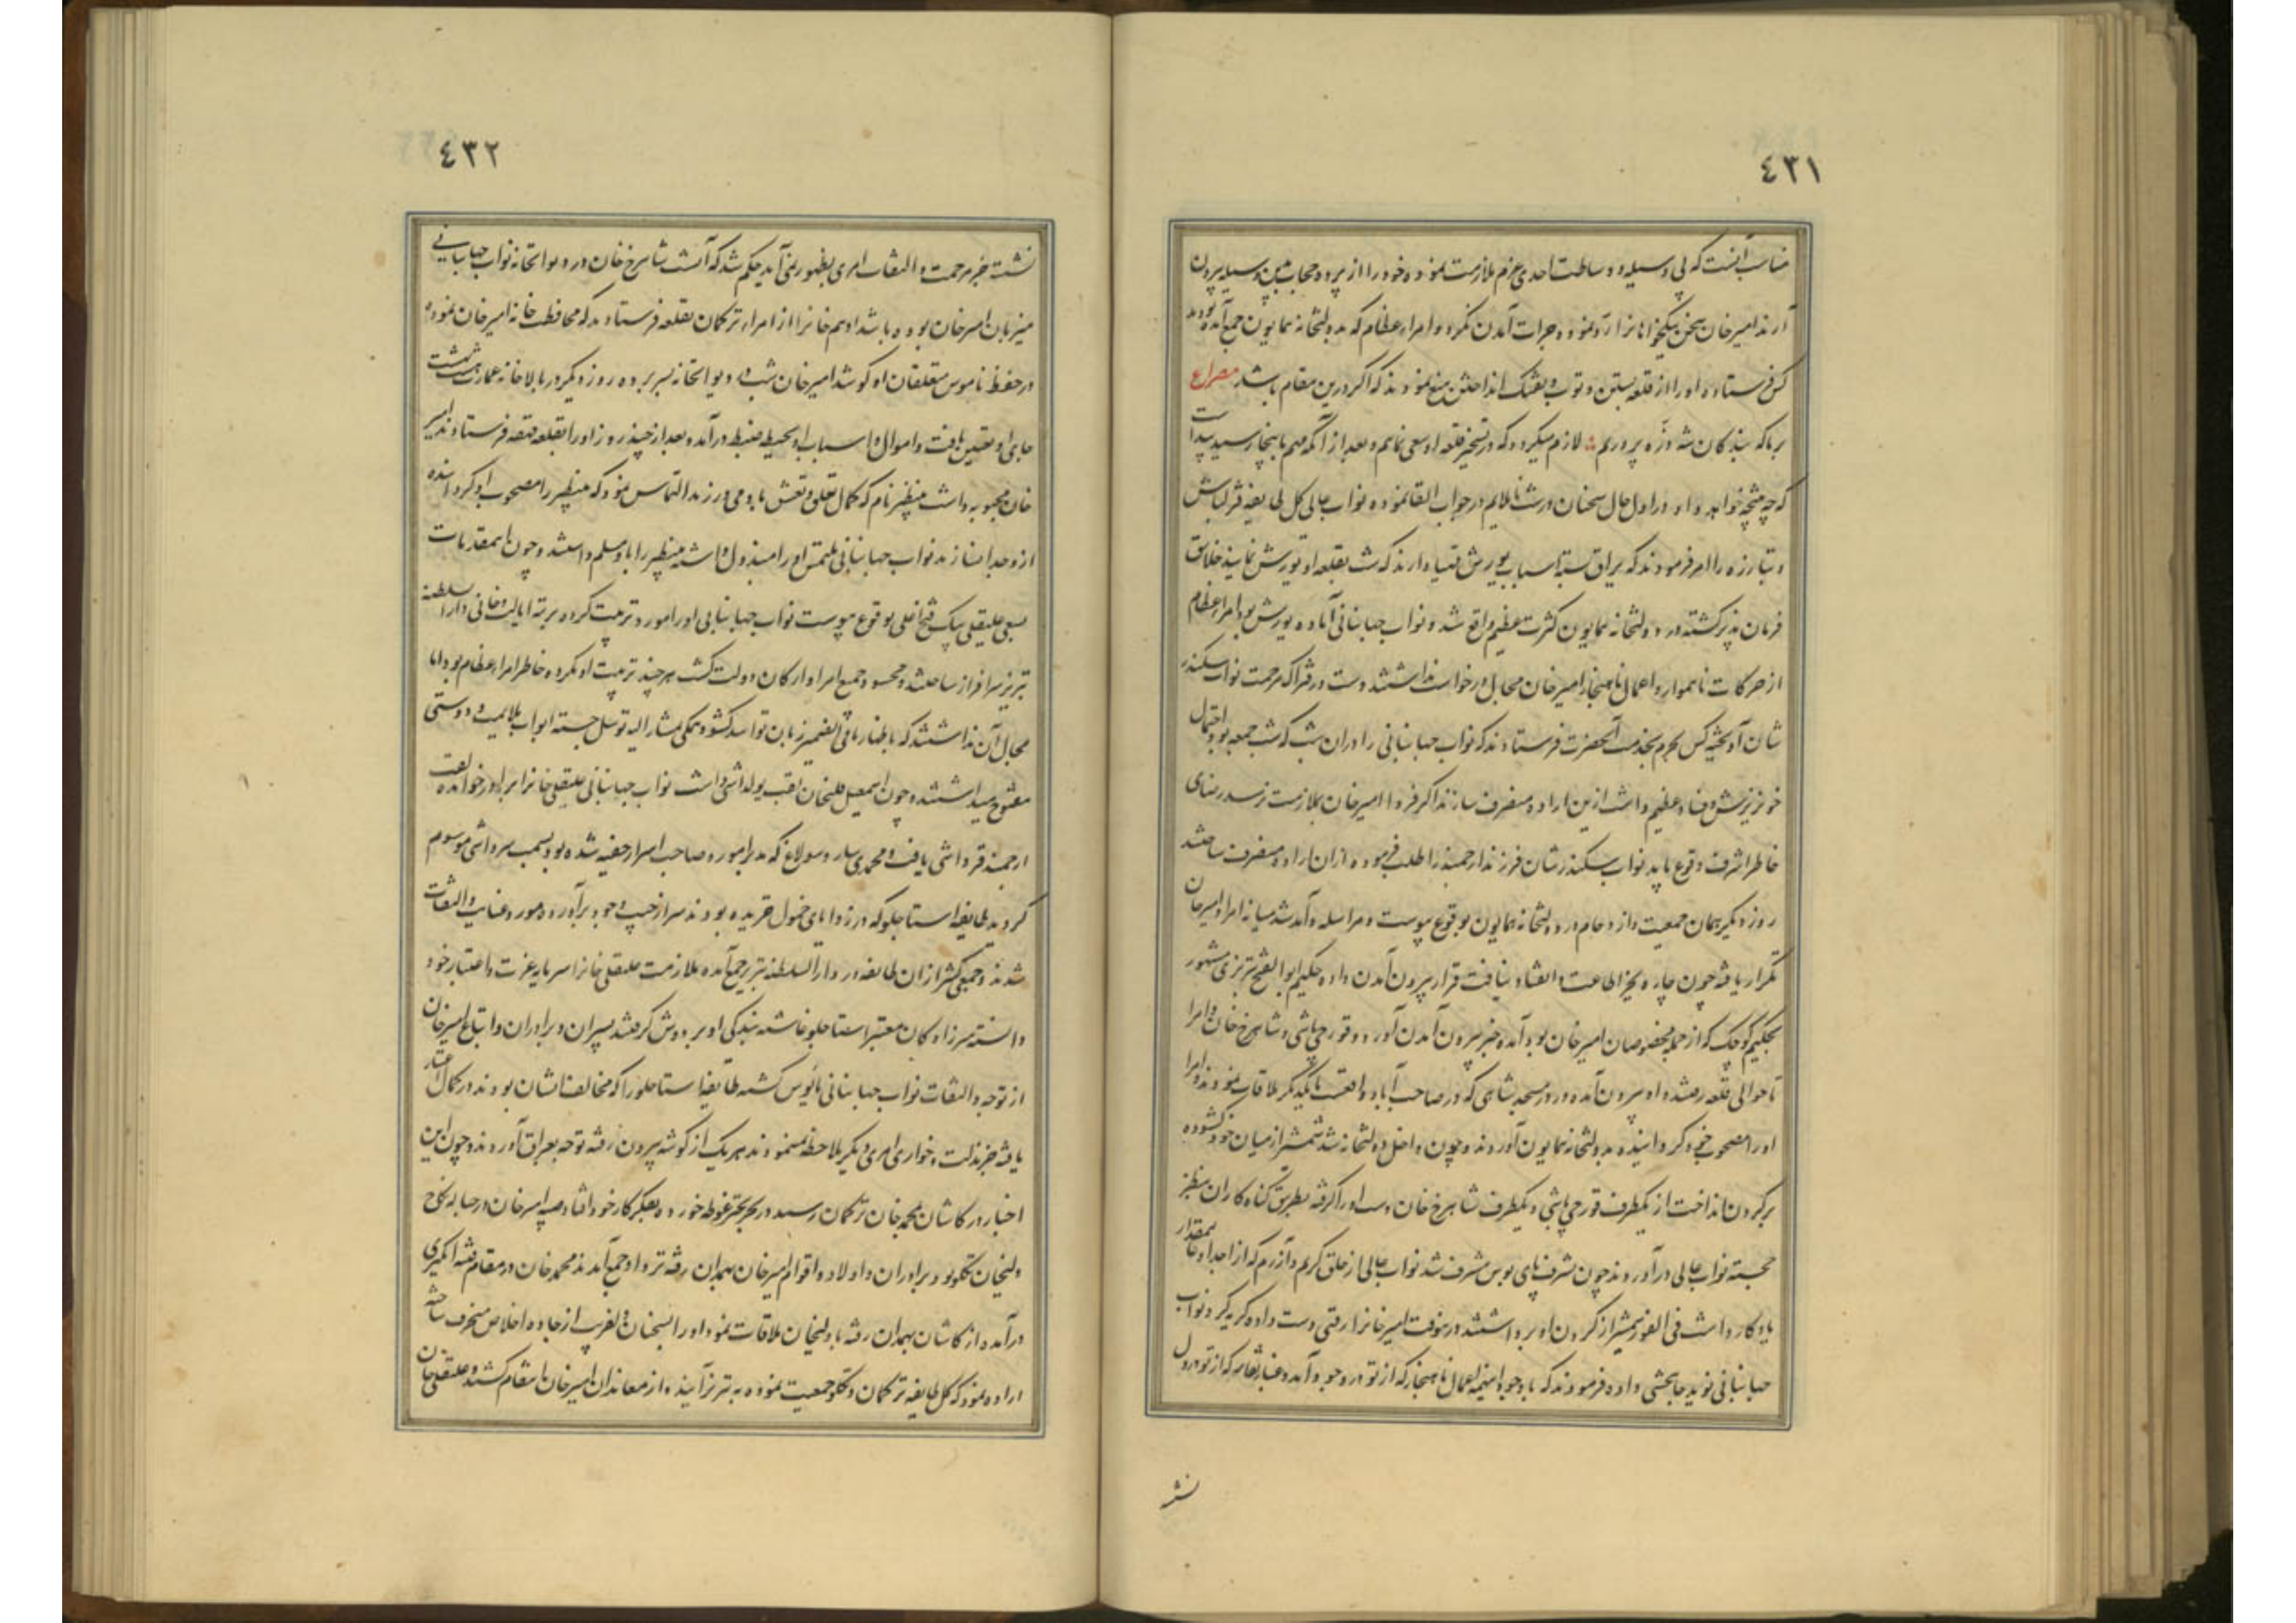 ٤٣١
مناسب آنست که بی وسیله و وساطت احدی عزم ملازمت نموده خود را از پرده حجاب بیرون
آرند امیرخان سخن نیکخواهانرا رد نموده جرات آمدن نکرد و امراء عظام که بدولتخانه همایون جمع آمده بودند
کس فرستاده او را از قلعه بستن و توپ و تفنک انداختن منع نمودند که اکر درین مقام باشد مصراع
برما که بندکان شه ذره پروریم لازم میکردد که در تسخیر قلعه او سعی نمائیم و بعد از آنکه مهم باینجا رسید پیداست
که چه نتیجه خواهد داد او در اول حال سخنان درشت ناملایم در جواب القا نموده نواب عالی کل طایفه قزلباش
و تبارزه را امر فرمودند که یراق بسته اسباب یورش مهیا دارند که شب بقلعه او یورش نمایند خلایق
فرمان پذیر کشته در دولتخانه همایون کثرت عظیم واقع شد و نواب جهانبانی آماده یورش بود امراء عظام
از حرکات ناهموار و اعمال ناهنجار امیرخان مجال درخواست نداشتند دست در فتراک مرحمت نواب سکندر
شان آویخته کس بحرم بخدمت آنحضرت فرستادند که نواب جهانبانی را در آن شب که شب جمعه بود و احتمال
خونریزش و فساد عظیم داشت ازین اراده منصرف سازند اکر فردا امیرخان بملازمت نرسد رضای
خاطر اشرف بوقوع یابد نواب سکندرشان فرزند ارجمند را طلب فرموده از آن اراده منصرف ساختند
روز دیکر همان جمعیت و ازدحام در دولتخانه همایون بوقوع پیوست و مراسله و آمد شد میانه امرا و امیرخان
تکرار یافته چون چاره بجز اطاعت و انقیاد نیافت قرار بیرون آمدن داده حکیم ابوالفتح تبریزی مشهور
بحکیم کوچک که از جمله مخصوصان امیرخان بود آمده خبر بیرون آمدن آورد و قورچی باشی و شاهرخ خان و امرا
تا حوالی قلعه رفتند و او بیرون آمده در مسجد شاهی که در صاحب آباد واقعست با یکدیکر ملاقات نمودند و امرا
او را مصحوب خود کردانیده بدولتخانه همایون آوردند و چون داخل دولتخانه شد شمشیر از میان خود کشوده
برکردن انداخت از یکطرف قورچی باشی و یکطرف شاهرخ خان دست او را کرفته بطریق کناه کاران بنظر
خجسته نواب عالی درآوردند چون بشرف پای بوس مشرف شد نواب عالی از خلق کریم و آزرم که از اجداد عالیمقدار
یادکار داشت فی الفور شمشیر از کردن او برداشتند در آنوقت امیرخانرا رقتی دست داده کریه کرد نواب
جهانبانی نوید جانبخشی داده فرمودند که با وجود اینهمه اعمال ناهنجار که از تو در وجود آمد و غبار نقار که از تو در دل
نشـ
٤٣٢
نشسته جز مرحمت و التفات امری بظهور نمی آید حکم شد که آن شب شاهرخ خان در دیوانخانه نواب جهانبانی
میزبان امیرخان بوده باشد ادهم خانرا از امراء ترکمان بقلعه فرستادند که محافظت خانه امیرخان نموده
در حفظ ناموس متعلقان او کوشد امیرخان شب در دیوانخانه بسر برده روز دیکر در بالاخانه عمارت هشت بهشت
جای او تعیین یافت و اموال و اسباب او بحیطه ضبط درآمده بعد از چند روز او را بقلعه قهقهه فرستادند امیر
خان محبوبه داشت نام که کمال تعلق و تعشق با او می ورزید التماس نمود که را مصحوب او کردانیده
از و جدا نسازند نواب جهانبانی ملتمس او را مبذول داشته را باو مسلم داشتند و چون این مقدمات
بسعی علیقلی بیک فتح اغلی بوقوع پیوست نواب جهانبانی او را مورد تربیت کرده برتبه ایالت و خانی دارالسلطنه
تبریز سرافراز ساختند و محسود جمیع امراء و ارکان دولت کشت هرچند تربیت او مکروه خاطر امراء عظام بود اما
مجال آن نداشتند که باظهار ما فی الضمیر زبان توانند کشود همکی بمشارالیه توسل جسته ابواب ملایمت و دوستی
مفتوح میداشتند و چون اسمعیل قلیخان لقب یولداشی داشت نواب جهانبانی علیقلی خانرا برادر خوانده لقب
ارجمند قرداشی یافت و محمدی سارو سولاغ که مدبر امور و صاحب اسرار خفیه شده بود بسمت سرداشی موسوم
کردید طایفه استاجلو که در زوایای خمول خزیده بودند سر از جیب وجود برآورده مورد عنایت و التفات
شدند و جمعی کثیر از آن طایفه در دارالسلطنه تبریز جمع آمده ملازمت علیقلی خانرا سرمایه عزت و اعتبار خود
دانستند میرزادکان معتبر استاجلو غاشیه بندکی او بر دوش کرفتند پسران و برادران و اتباع امیرخان
از توجه و التفات نواب جهانبانی مأیوس کشته طایفه استاجلو را که مخالف ایشان بودند در کمال اعتبار
یافته جز مذلت و خواری امری دیکر ملاحظه ننمودند هر یک از کوشه بیرون رفته توجه بعراق آوردند و چون این
اخبار در کاشان بمحمد خان ترکمان رسید در بحر تحیر غوطه خورد و بفکر کار خود افتاد صبیه امیرخان در حباله نکاح
ولیخان تکلو بود برادران و اولاد و اقوام امیرخان بهمدان رفته نزد او جمع آمدند محمد خان در مقام فتنه انکیزی
درآمده از کاشان بهمدان رفته با ولیخان ملاقات نمود او را بسخنان از جاده اخلاص منحرف ساخته
اراده نمود که کل طایفه ترکمان و تکلو جمعیت نموده به تبریز آیند و از معاندان امیرخان انتقام کشند و علیقلی خان